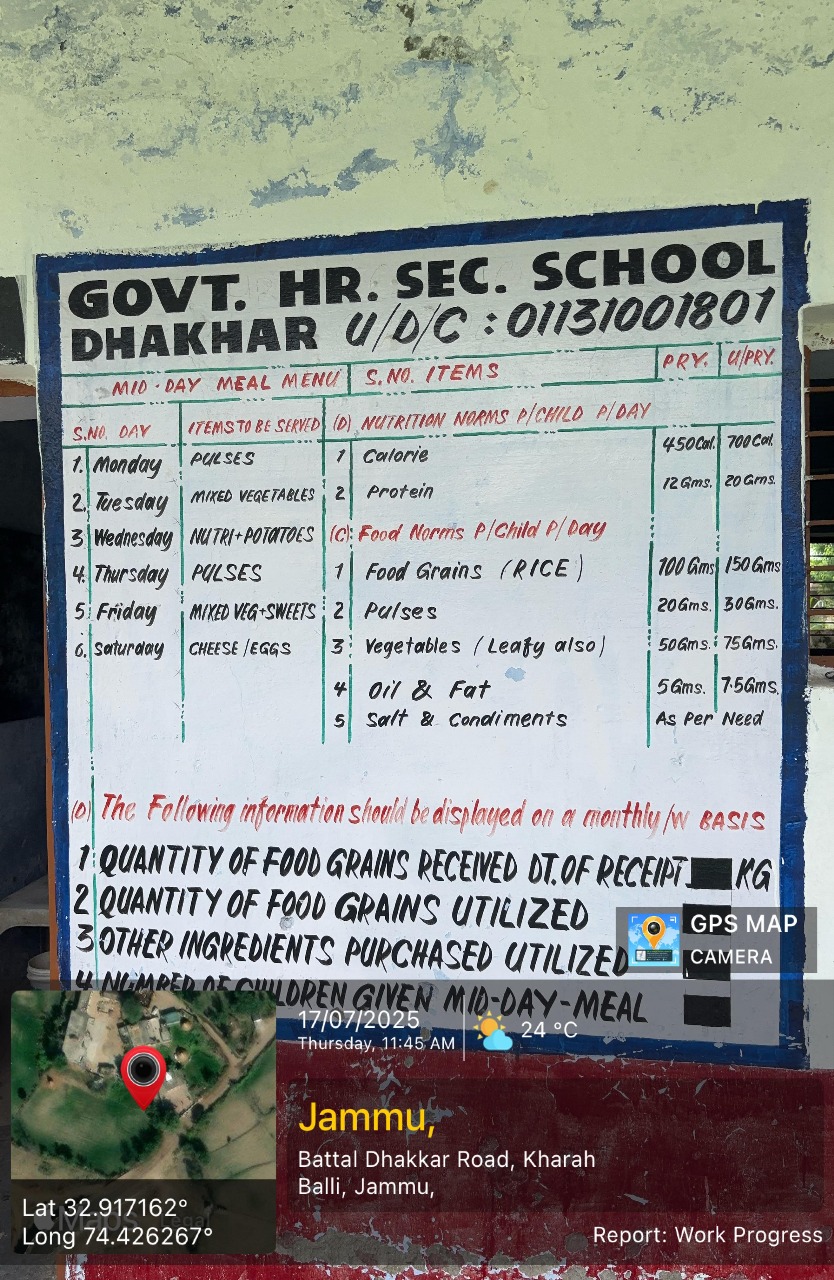 GOVT. HR. SEC. SCHOOL
DHAKHAR U/D/C : 01131001801
MID-DAY MEAL MENU S.NO. ITEMS PRY. U/PRY.
S.NO. DAY ITEMS TO BE SERVED (D) NUTRITION NORMS P/CHILD P/DAY
1. Monday PULSES 1 Calorie 450Cal. 700Cal.
2. Tuesday MIXED VEGETABLES 2 Protein 12Gms. 20Gms.
3 Wednesday NUTRI+POTATOES (C): Food Norms P/Child P/Day
4. Thursday PULSES 1 Food Grains (RICE) 100Gms 150Gms
5. Friday MIXED VEG+SWEETS 2 Pulses 20Gms. 30Gms.
6. Saturday CHEESE/EGGS 3 Vegetables (Leafy also) 50Gms. 75Gms.
4 Oil & Fat 5Gms. 7.5Gms.
5 Salt & Condiments As Per Need
(D) The Following information should be displayed on a monthly/w BASIS
1 QUANTITY OF FOOD GRAINS RECEIVED DT. OF RECEIPT KG
2 QUANTITY OF FOOD GRAINS UTILIZED
3 OTHER INGREDIENTS PURCHASED UTILIZED
4 NUMBER OF CHILDREN GIVEN MID-DAY-MEAL
GPS MAP
CAMERA
17/07/2025
Thursday, 11:45 AM
24 °C
Jammu,
Battal Dhakkar Road, Kharah
Balli, Jammu,
Lat 32.917162°
Long 74.426267°
Report: Work Progress